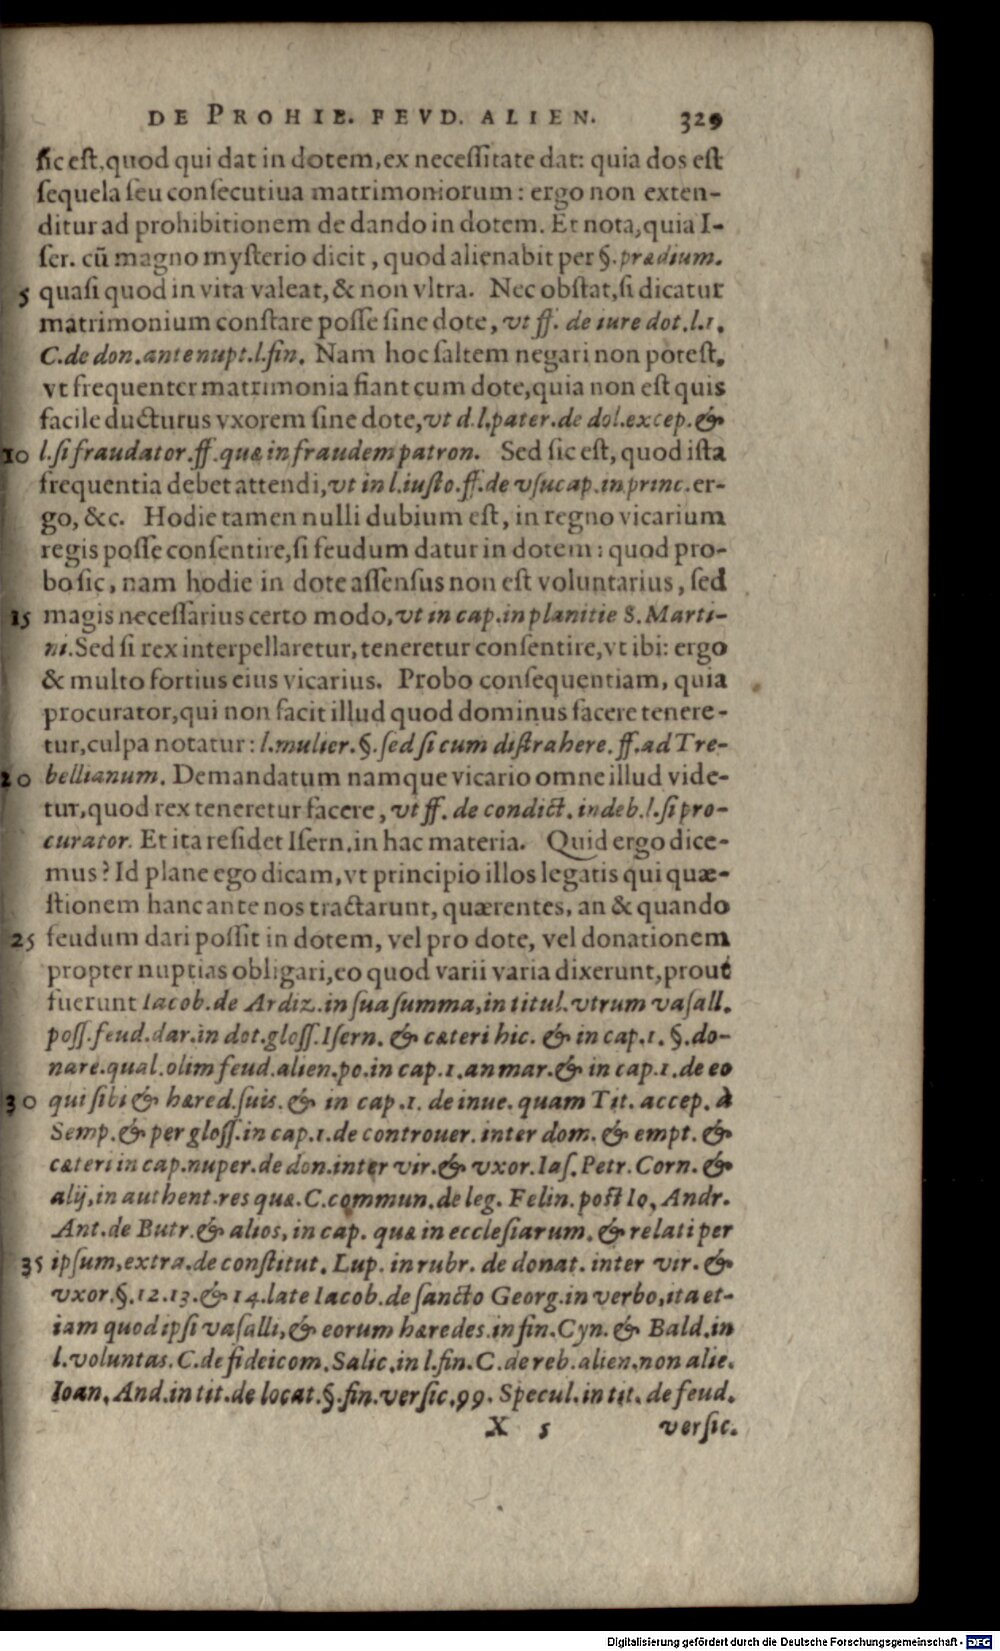 DE PROHIB. FEVD. ALIEN. 329
sic est, quod qui dat in dotem, ex necessitate dat: quia dos est
sequela seu consecutiua matrimoniorum: ergo non exten-
ditur ad prohibitionem de dando in dotem. Et nota, quia I-
ser. cū magno mysterio dicit, quod alienabit per §. prædium.
5 quasi quod in vita valeat, & non vltra. Nec obstat, si dicatur
matrimonium constare posse sine dote, vt ff. de iure dot. l. 1.
C. de don. ante nupt. l. fin. Nam hoc saltem negari non potest,
vt frequenter matrimonia fiant cum dote, quia non est quis
facile ducturus vxorem sine dote, vt d. l. pater. de dol. excep. &
10 l. si fraudator. ff. quæ in fraudem patron. Sed sic est, quod ista
frequentia debet attendi, vt in l. iusto. ff. de vsucap. in princ. er-
go, &c. Hodie tamen nulli dubium est, in regno vicarium
regis posse consentire, si feudum datur in dotem: quod pro-
bo sic, nam hodie in dote assensus non est voluntarius, sed
15 magis necessarius certo modo, vt in cap. in planitie S. Marti-
ni. Sed si rex interpellaretur, teneretur consentire, vt ibi: ergo
& multo fortius eius vicarius. Probo consequentiam, quia
procurator, qui non facit illud quod dominus facere tenere-
tur, culpa notatur: l. mulier. §. sed si cum distrahere. ff. ad Tre-
20 bellianum. Demandatum namque vicario omne illud vide-
tur, quod rex teneretur facere, vt ff. de condict. indeb. l. si pro-
curator. Et ita residet Isern. in hac materia. Quid ergo dice-
mus? Id plane ego dicam, vt principio illos legatis qui quæ-
stionem hanc ante nos tractarunt, quærentes, an & quando
25 feudum dari possit in dotem, vel pro dote, vel donationem
propter nuptias obligari, eo quod varii varia dixerunt, prout
fuerunt Iacob. de Ardiz. in sua summa, in titul. vtrum vasall.
poss. feud. dar. in dot. gloss. Isern. & cæteri hic. & in cap. 1. §. do-
nare. qual. olim feud. alien. po. in cap. 1. an mar. & in cap. 1. de eo
30 qui sibi & hæred. suis. & in cap. 1. de inue. quam Tit. accep. à
Semp. & per gloss. in cap. 1. de controuer. inter dom. & empt. &
cæteri in cap. nuper. de don. inter vir. & vxor. Ias. Petr. Corn. &
alij, in authent. res quæ. C. commun. de leg. Felin. post Io. Andr.
Ant. de Butr. & alios, in cap. quæ in ecclesiarum. & relati per
35 ipsum, extra. de constitut. Lup. in rubr. de donat. inter vir. &
vxor. §. 12. 13. & 14. late Iacob. de sancto Georg. in verbo, ita et-
iam quod ipsi vasalli, & eorum hæredes. in fin. Cyn. & Bald. in
l. voluntas. C. de fideicom. Salic. in l. fin. C. de reb. alien. non alie.
Ioan. And. in tit. de locat. §. fin. versic. 99. Specul. in tit. de feud.
X 5 versic.
Digitalisierung gefördert durch die Deutsche Forschungsgemeinschaft - DFG